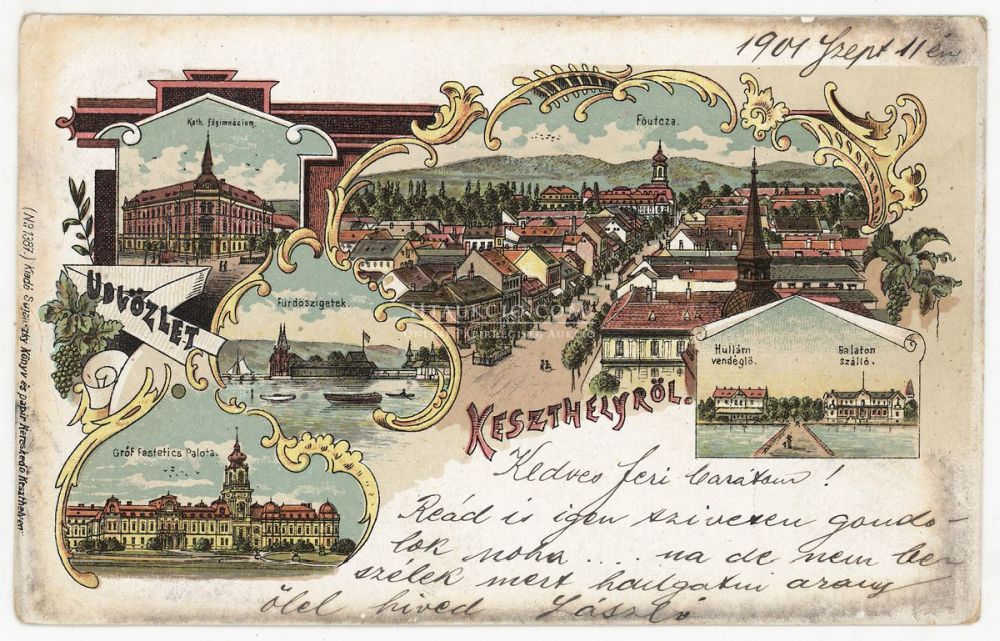 1901 Szept 11 én
Kath. főgimnázium.
Főutcza.
ÜDVÖZLET
Fürdőszigetek.
Hullám vendéglő.
Balaton szálló.
KESZTHELYRŐL.
Gróf Festetics Palota.
(No. 1387.) Kiadó Könyv és papir Kereskedő Keszthelyen
Kedves Feri barátom!
Reád is igen szivesen gondo-
lok noha .... na de nem be-
szélek mert hallgatni arany
ölel hived László